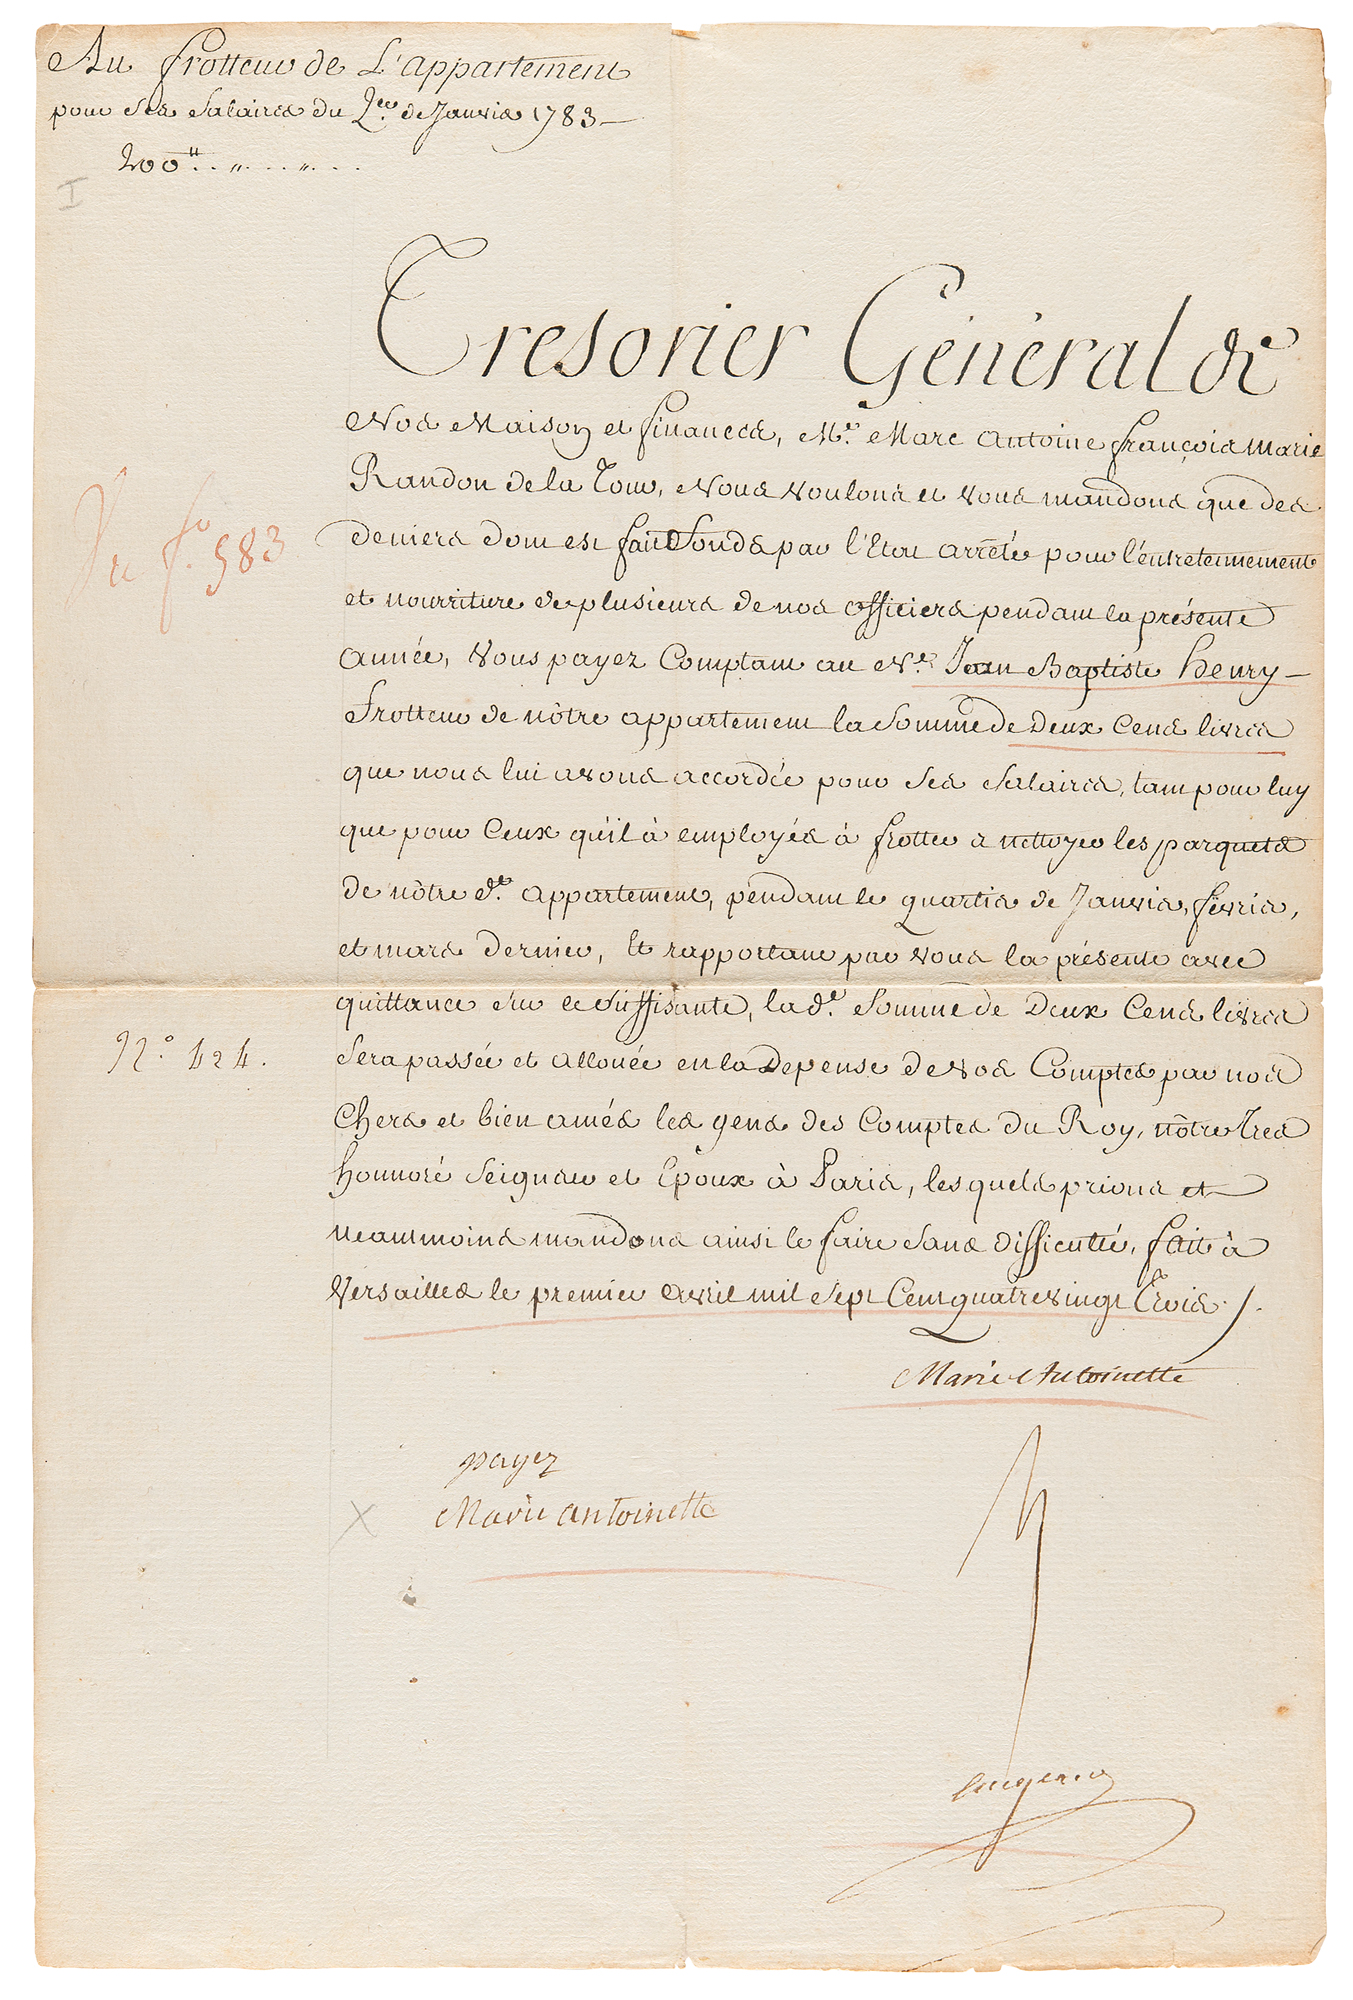 Au frotteur de L'appartement
pour ses salaires du Q.er de Janvier 1783 —
200 ʰ . . „ . . . „ . . .
I
Tresorier Général de
Nos Maison et finances, M.e Marc Antoine françois Marie
Randon de la Tour, Nous voulons et vous mandons que des
deniers dont est fait fonds par l'Etat arrêté pour l'entretennement
et nourriture de plusieurs de nos officiers pendant la présente
année, vous payez Comptant au N.é Jean Baptiste henry —
frotteur de nôtre appartement la Somme de Deux Cens livres
que nous lui avons accordée pour ses salaires, tant pour luy
que pour Ceux qu'il à employés à frotter a nettoyer les parquets
de nôtre d.t appartement, pendant le quartier de Janvier, février,
et mars dernier, Et rapportant par vous la présente avec
quittance sur ce suffisante, la d.e Somme de Deux Cens livres
Sera passée et allouée en la Depense de vos Comptes par nos
Chers et bien amés les gens des Comptes du Roy, nôtre Tres
honnoré Seigneur et Epoux à Paris, les quels prions et
neantmoins mandons ainsi le faire sans difficulté, fait à
Versailles le premier avril mil sept Cent quatre vingt Trois ./.
Vu f.o 583
N.o 424.
Marie Antoinette
payez
Marie antoinette
X